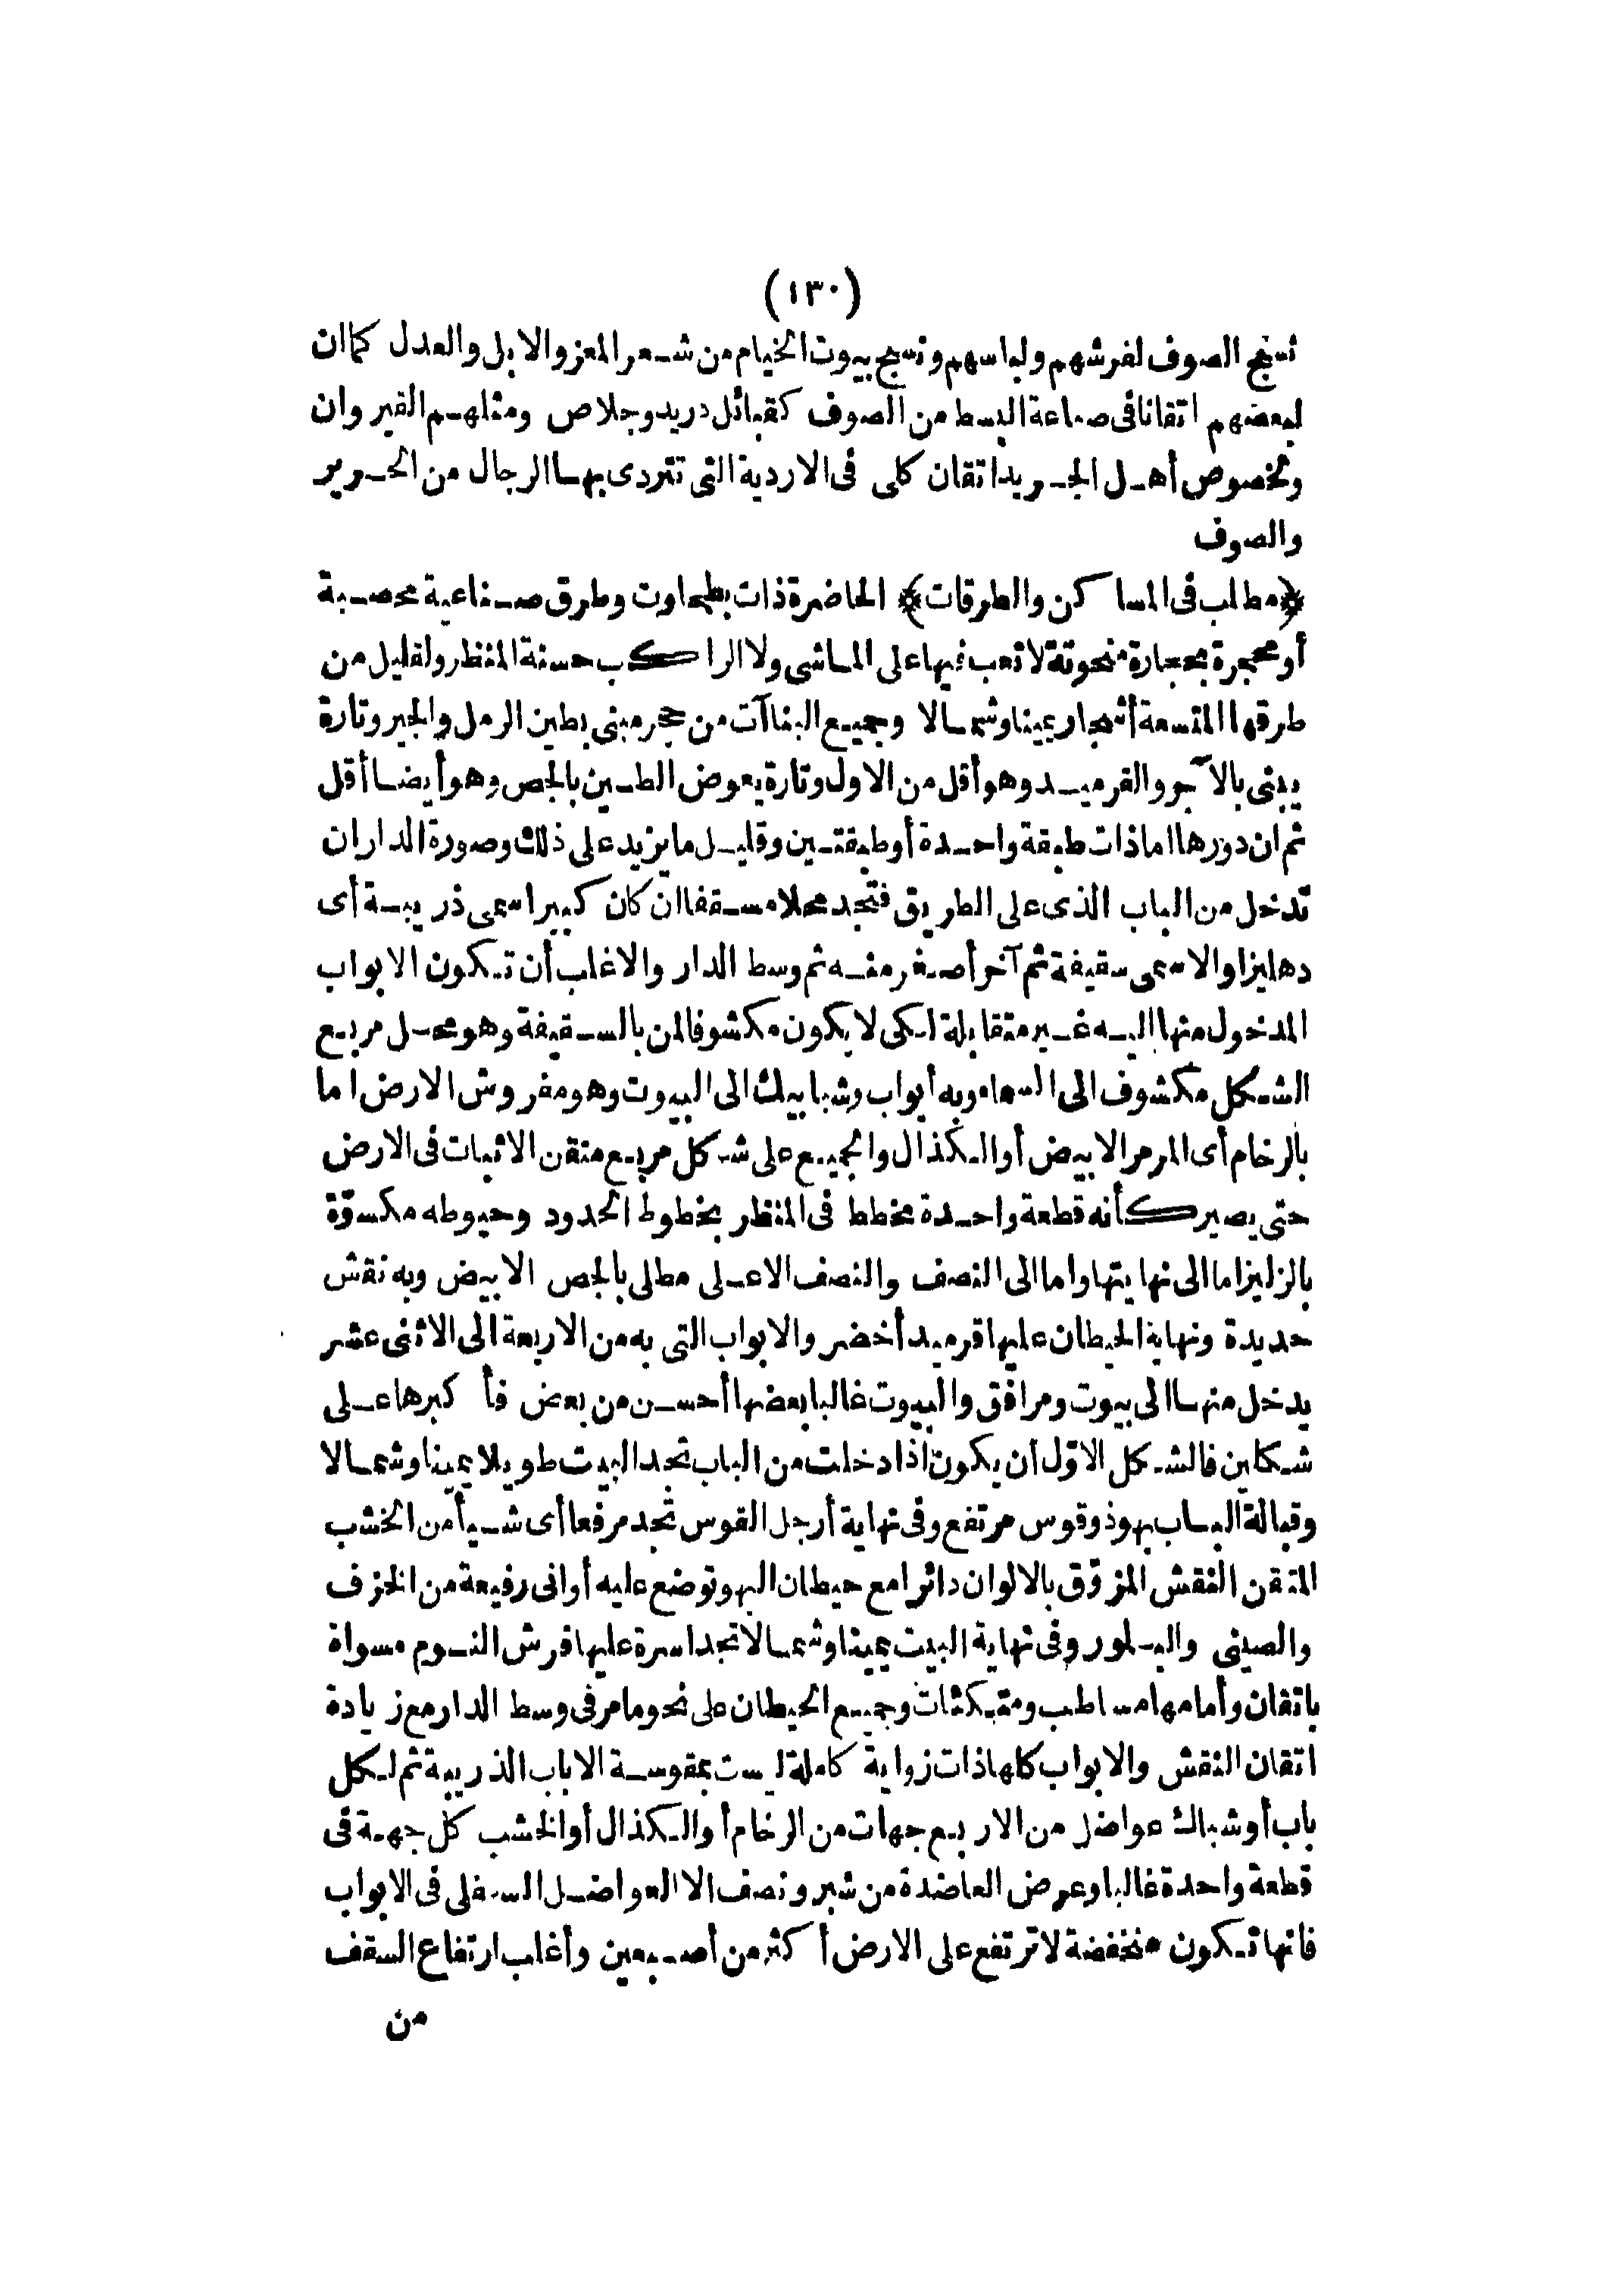 (١٣٠)
نسج الصوف لفرشهم ولباسهم ونسج بيوت الخيام من شعر المعز والابل والعدل كما ان
لبعضهم اتقانا فى صناعة البسط من الصوف كقبائل دريد وجلاص ومثلهم القيروان
وبخصوص أهل الجريد اتقان كلى فى الاردية التى تتردى بها الرجال من الحرير
والصوف
﴿مطلب فى المساكن والطرقات﴾ الحاضرة ذات بطحاوت وطرق صناعية محصبة
أو محجرة بحجارة منحوتة لا تعب فيها على الماشى ولا الراكب حسنة المنظر ولقليل من
طرقها المتسعة أشجار يمينا وشمالا وجميع البناآت من حجر مبنى بطين الرمل والجير وتارة
يبنى بالآجر والقرميد وهو أقل من الاول وتارة يعوض الطين بالجص وهو أيضا أقل
ثم ان دورها اما ذات طبقة واحدة أو طبقتين وقليل ما يزيد على ذلك وصورة الدار ان
تدخل من الباب الذى على الطريق فتجد محلا مسقفا ان كان كبيرا سمى ذريبة أى
دهليزا والا سمى سقيفة ثم آخر أصغر منه ثم وسط الدار والاغلب أن تكون الابواب
المدخول منها اليه غير متقابلة لكى لا يكون مكشوفا لمن بالسقيفة وهو محل مربع
الشكل مكشوف الى السماء وبه أبواب وشبابيك الى البيوت وهو مفروش الارض اما
بالرخام أى المرمر الابيض أو الكذال والجميع على شكل مربع متقن الاثبات فى الارض
حتى يصير كأنه قطعة واحدة مخطط فى المنظر بخطوط الحدود وحيوطه مكسوّة
بالزليز اما الى نهايتها واما الى النصف والنصف الاعلى مطلى بالجص الابيض وبه نقش
حديدة ونهاية الحيطان عليها قرميد أخضر والابواب التى به من الاربعة الى الاثنى عشر
يدخل منها الى بيوت ومرافق والبيوت غالبا بعضها أحسن من بعض فأكبرها على
شكلين فالشكل الاوّل أن يكون اذا دخلت من الباب تجد البيت طويلا يمينا وشمالا
وقبالة الباب بهو ذو قوس مرتفع وفى نهاية أرجل القوس تجد مرفعا أى شيأ من الخشب
المتقن النقش المزوّق بالالوان دائرا مع حيطان البهو توضع عليه أوانى رفيعة من الخزف
والصينى والبلور وفى نهاية البيت يمينا وشمالا تجد اسرة عليها فرش النوم مسواة
باتقان وأمامها مساطب ومتكئات وجميع الحيطان على نحو ما مر فى وسط الدار مع زيادة
اتقان النقش والابواب كلها ذات زواية كاملة ليست بمقوسة الا باب الذريبة ثم لكل
باب أو شباك عواضل من الاربع جهات من الرخام أو الكذال أو الخشب كل جهة فى
قطعة واحدة غالبا وعرض العاضدة من شبر ونصف الا العواضل السفلى فى الابواب
فانها تكون منخفضة لا ترتفع على الارض أكثر من أصبعين وأغلب ارتفاع السقف
من